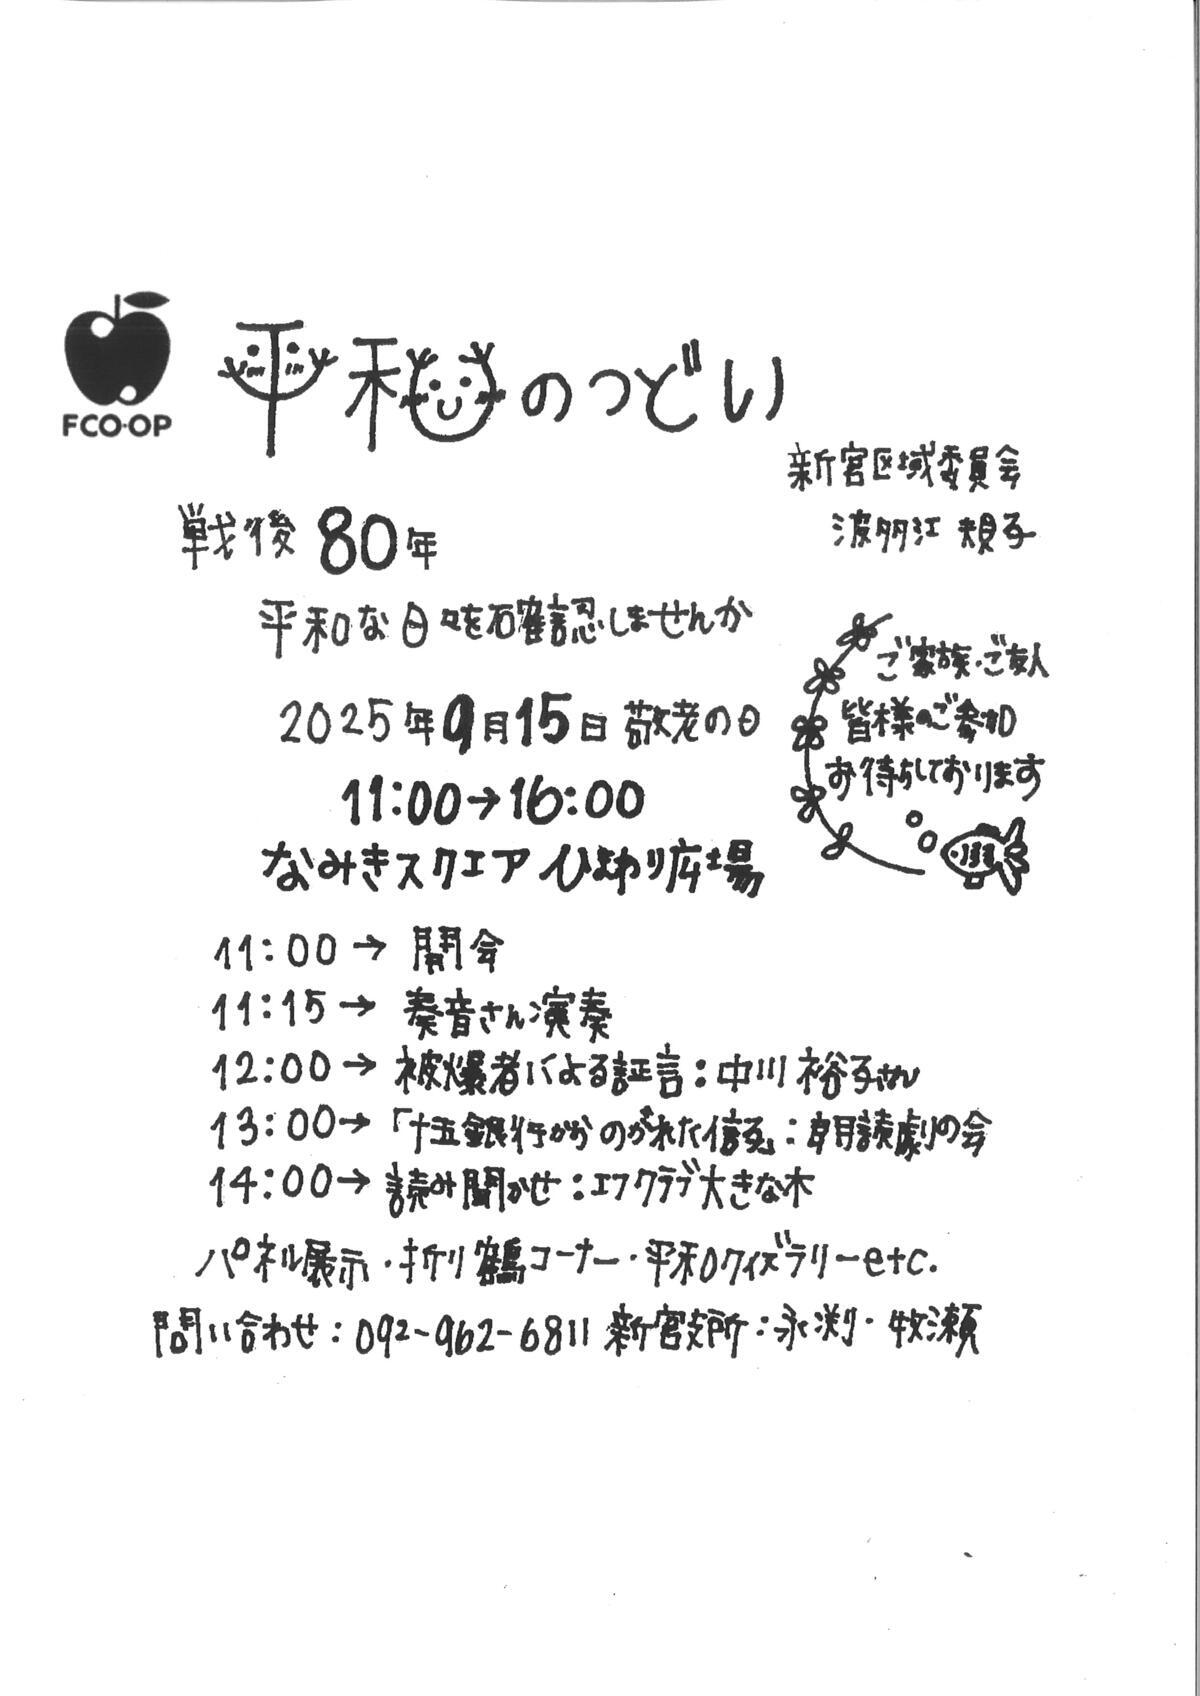 FCO・OP
平和のつどい
新宮区域委員会
波多江 規子
戦後80年
平和な日々を確認しませんか
ご家族・ご友人
皆様のご参加
お待ちしております
2025年9月15日 敬老の日
11:00→16:00
なみきスクエア ひまわり広場
11:00→ 開会
11:15→ 奏音さん演奏
12:00→ 被爆者による証言:中川 裕子さん
13:00→「十五銀行がのがれた信子」:朗読劇の会
14:00→ 読み聞かせ:エフクラブ大きな木
パネル展示・折り鶴コーナー・平和クイズラリーetc.
問い合わせ:092-962-6811 新宮支所:永渕・牧瀬